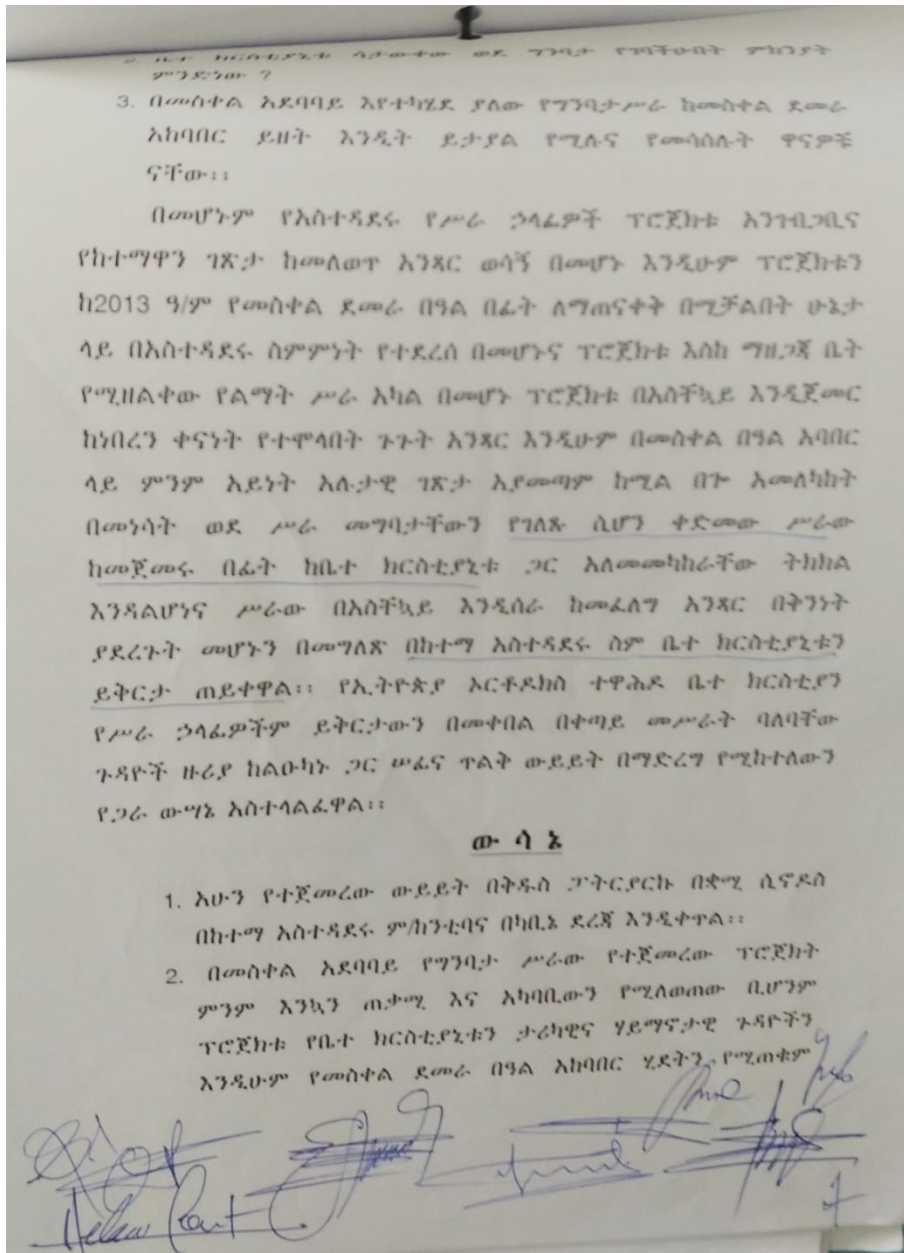 2. ቤተ ክርስቲያኒቱ ሳታውቀው ወደ ግንባታ የገባችሁበት ምክንያት
ምንድነው ?
3. በመስቀል አደባባይ እየተካሄደ ያለው የግንባታሥራ ከመስቀል ደመራ
አከባበር ይዘት እንዲት ይታያል የሚሉና የመሳሰሉት ዋናዎቹ
ናቸው፡፡
በመሆኑም የአስተዳደሩ የሥራ ኃላፊዎች ፕሮጀክቱ አንገብጋቢና
የከተማዋን ገጽታ ከመለወጥ አንጻር ወሳኝ በመሆኑ እንዲሁም ፕሮጀክቱን
ከ2013 ዓ/ም የመስቀል ደመራ በዓል በፊት ለማጠናቀቅ በሚቻልበት ሁኔታ
ላይ በአስተዳደሩ ስምምነት የተደረሰ በመሆኑና ፕሮጀክቱ እስከ ማዘጋጃ ቤት
የሚዘልቀው የልማት ሥራ አካል በመሆኑ ፕሮጀክቱ በአስቸኳይ እንዲጀመር
ከነበረን ቀናነት የተሞላበት ጉጉት አንጻር እንዲሁም በመስቀል በዓል አባበር
ላይ ምንም አይነት አሉታዊ ገጽታ አያመጣም ከሚል በጎ አመለካከት
በመነሳት ወደ ሥራ መግባታቸውን የገለጹ ሲሆን ቀድመው ሥራው
ከመጀመሩ በፊት ከቤተ ክርስቲያኒቱ ጋር አለመመካከራቸው ትክክል
እንዳልሆነና ሥራው በአስቸኳይ እንዲሰራ ከመፈለግ አንጻር በቅንነት
ያደረጉት መሆኑን በመግለጽ በከተማ አስተዳደሩ ስም ቤተ ክርስቲያኒቱን
ይቅርታ ጠይቀዋል፡፡ የኢትዮጵያ ኦርቶዶክስ ተዋሕዶ ቤተ ክርስቲያን
የሥራ ኃላፊዎችም ይቅርታውን በመቀበል በቀጣይ መሥራት ባለባቸው
ጉዳዮች ዙሪያ ከልዑካኑ ጋር ሠፊና ጥልቅ ውይይት በማድረግ የሚከተለውን
የጋራ ውሣኔ አስተላልፈዋል፡፡
ው ሳ ኔ
1. አሁን የተጀመረው ውይይት በቅዱስ ፓትርያርኩ በቋሚ ሲኖዶስ
በከተማ አስተዳደሩ ም/ከንቲባና በካቢኔ ደረጃ እንዲቀጥል፡፡
2. በመስቀል አደባባይ የግንባታ ሥራው የተጀመረው ፕሮጀክት
ምንም እንኳን ጠቃሚ እና አካባቢውን የሚለወጠው ቢሆንም
ፕሮጀክቱ የቤተ ክርስቲያኒቱን ታሪካዊና ሃይማኖታዊ ጉዳዮችን
እንዲሁም የመስቀል ደመራ በዓል አከባበር ሂደትን የሚጠቁም